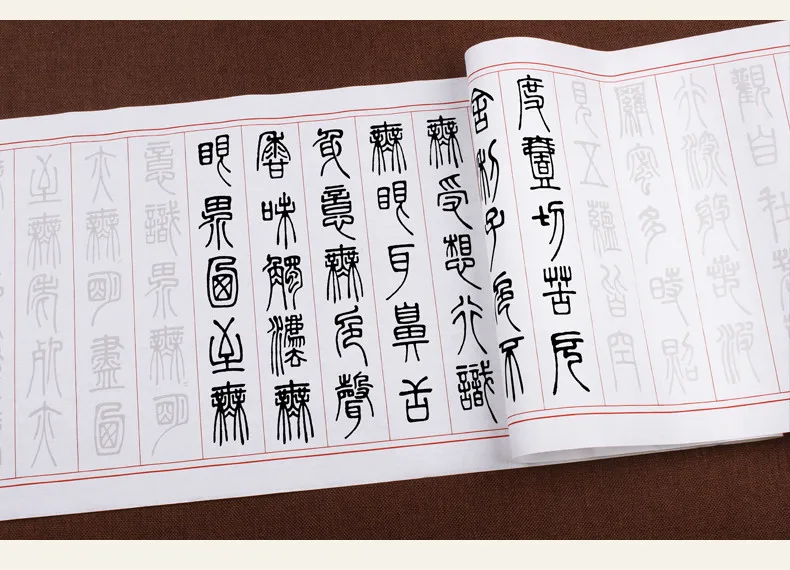 觀自在
行深般若波
羅蜜多時照
見五蘊皆空
度壹切苦厄
舍利子色不
無受想行識
無眼耳鼻舌
身意無色聲
香味觸法無
眼界乃至無
意識界無明
亦無明盡乃
至無老死亦